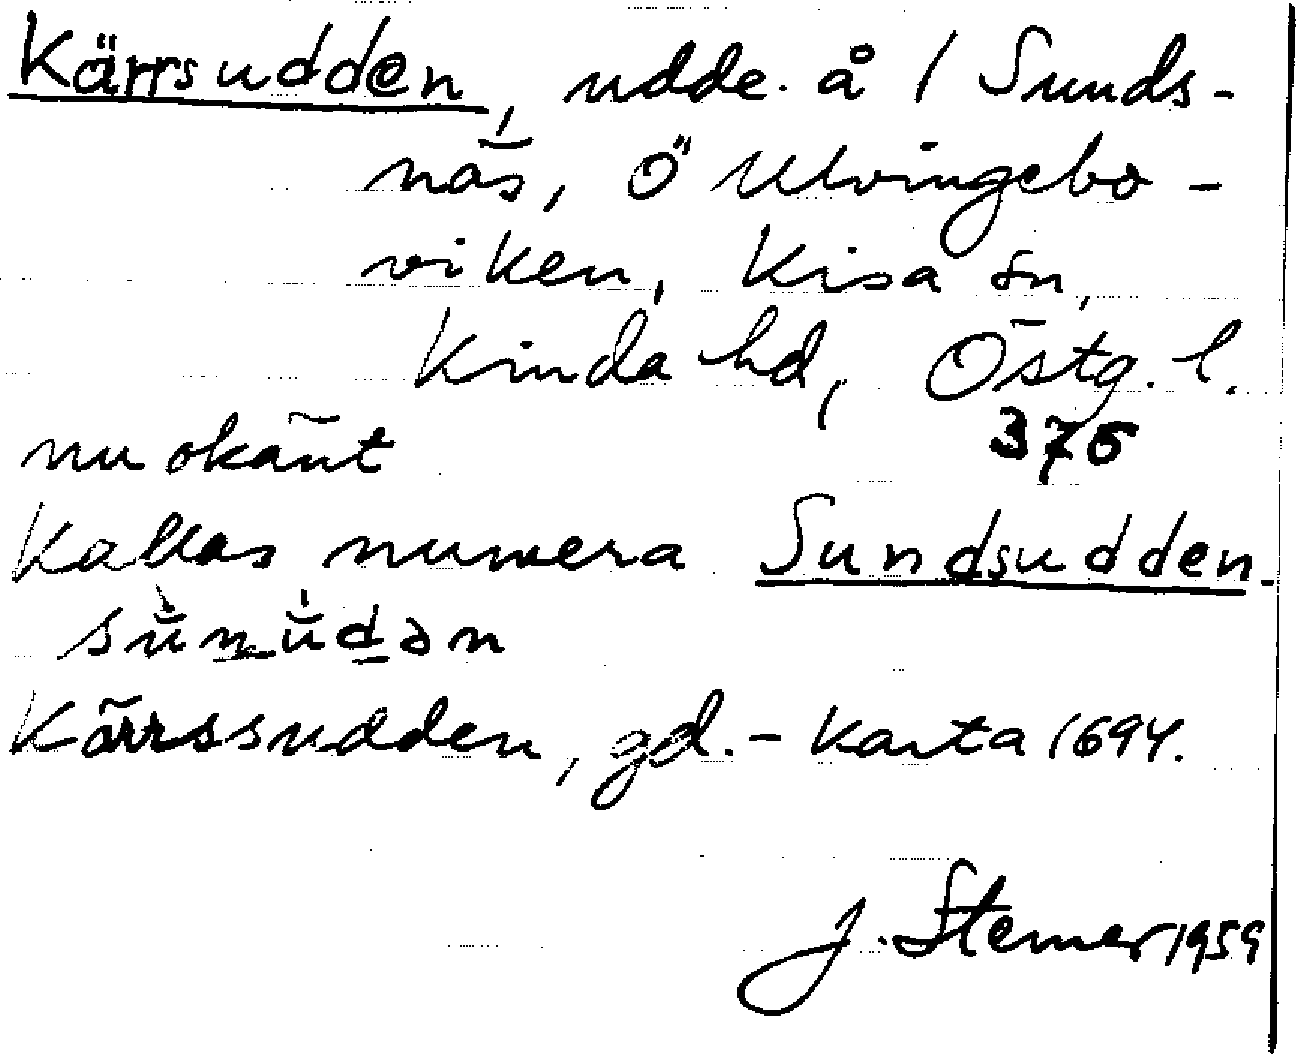 Kärrsudden, udde å 1 Sunds-
näs, Ö Ulvingebo-
viken, Kisa sn,
Kinda hd, Östg. l.
nu okänt 375
Kallas numera Sundsudden.
Kärrssudden, gd. - Karta 1694.
J. Sterner 1959